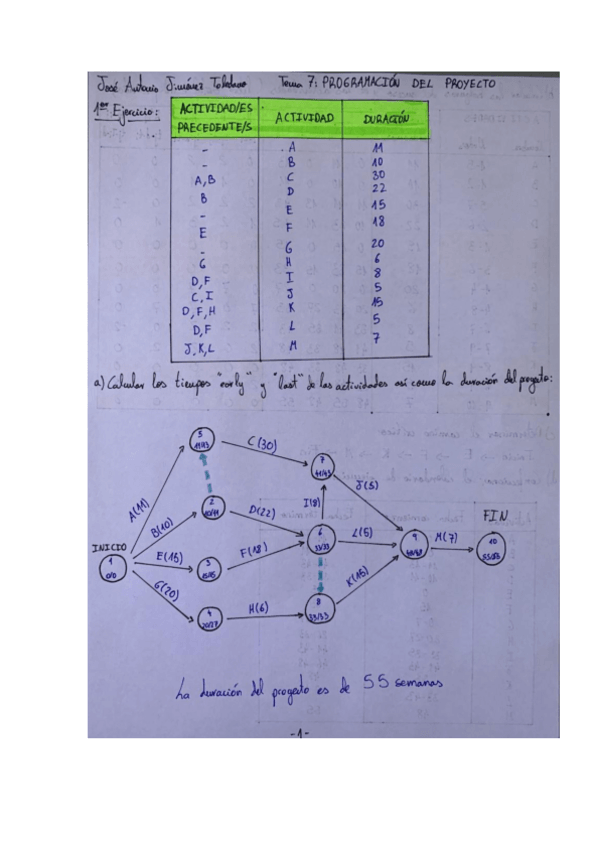 José Antonio Jiménez Toledano Tema 7: PROGRAMACIÓN DEL PROYECTO
1er Ejercicio:
ACTIVIDAD/ES PRECEDENTE/S ACTIVIDAD DURACIÓN
- A 11
- B 10
A,B C 30
B D 22
- E 15
E F 18
- G 20
G H 6
D,F I 8
C,I J 5
D,F,H K 15
D,F L 5
J,K,L M 7
a) Calcular los tiempos "early" y "last" de las actividades así como la duración del proyecto:
5
C(30)
7
A(11)
J(5)
2
I(8)
B(10)
D(22)
FIN
INICIO
6
33/33
L(5)
9
M(7)
10
1
0/0
E(15)
3
F(18)
K(15)
G(20)
H(6)
8
33/33
4
20/27
La duración del proyecto es de 55 semanas
-1-